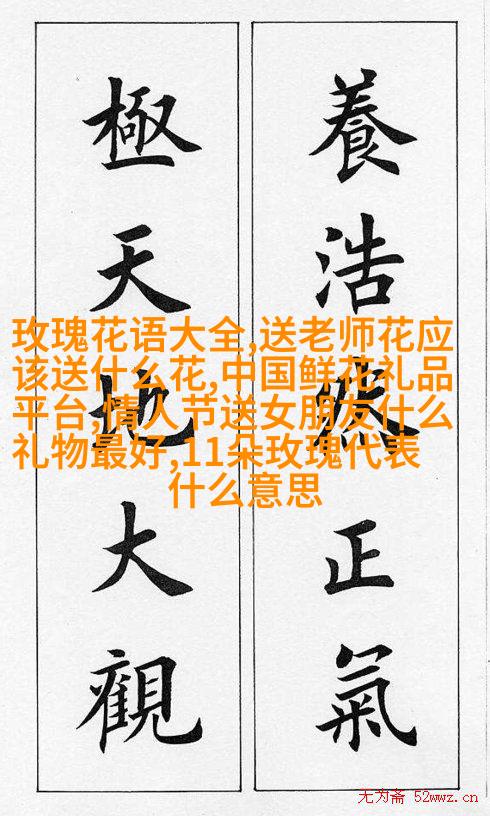 養浩然正氣
極天地大觀
玫瑰花语大全,送老师花应
该送什么花,中国鲜花礼品
平台,情人节送女朋友什么
礼物最好,11朵玫瑰代表
什么意思
无为斋 52wwz.cn